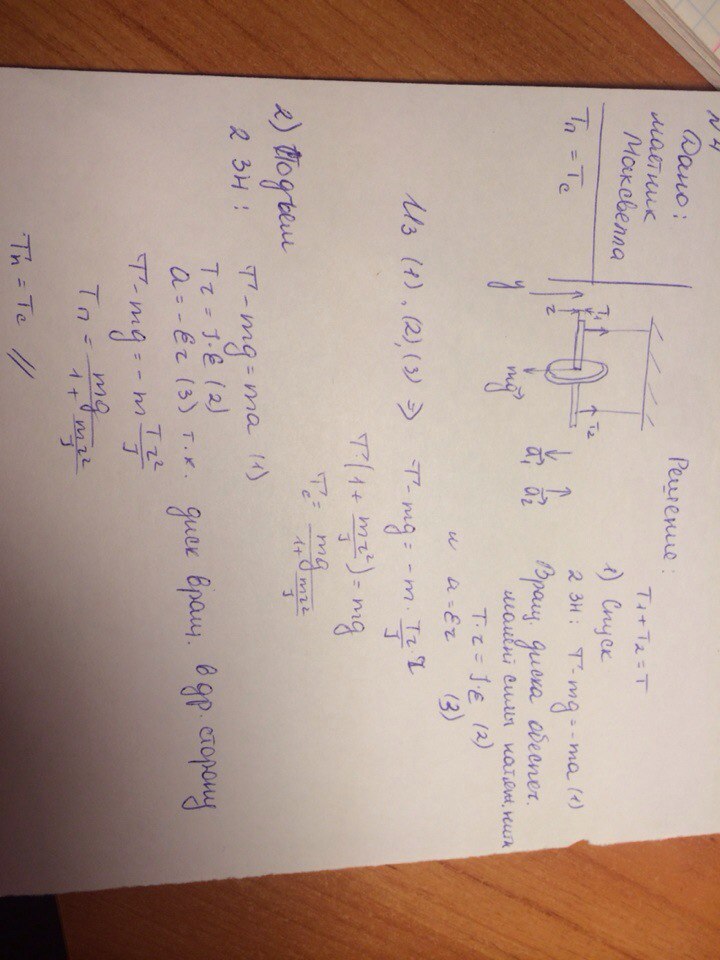 N4
Дано:
маятник
Максвелла
Tп = Tс
Решение:
T₁ T₂
r
y
mg⃗
a⃗₁ a⃗₂
T₁ + T₂ = T
1) Спуск
2 ЗН: T - mg = -ma (1)
Вращ. диска обеспеч.
момент силы натяж. нити
T·r = J·ε (2)
и a = εr (3)
Из (1), (2), (3) ⇒ T - mg = -m · Tr/J · r
T·(1 + mr²/J) = mg
Tс = mg/(1 + mr²/J)
2) Подъем
2 ЗН: T - mg = ma (1)
Tr = J·ε (2)
a = -εr (3) т.к. диск вращ. в др. сторону
T - mg = -m Tr²/J
Tп = mg/(1 + mr²/J)
Tп = Tс //